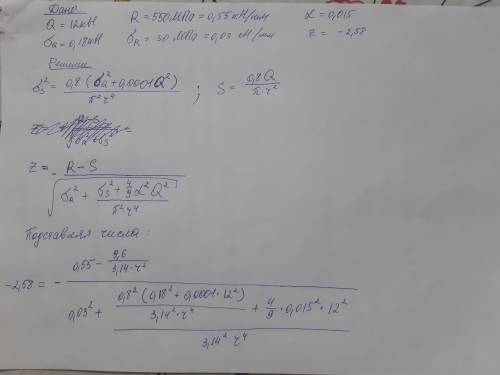 Дано
Q = 12кН R = 550МПа = 0,55 кН/мм α = 0,015
σ_Q = 0,18кН σ_R = 30 МПа = 0,03 кН/мм z = -2,58
Решение
σ_S² = 0,8 (σ_Q² + 0,0001Q²) / π²·r⁴ ; S = 0,8Q / π·r²
z = - R - S / √(σ_R² + (σ_S² + 4/9 α²Q²) / π²·r⁴)
Подставляя числа:
-2,58 = - (0,55 - 9,6 / 3,14·r²) / (0,03² + (0,8² (0,18² + 0,0001·12²) / 3,14²·r⁴ + 4/9 · 0,015² · 12²) / 3,14²·r⁴)